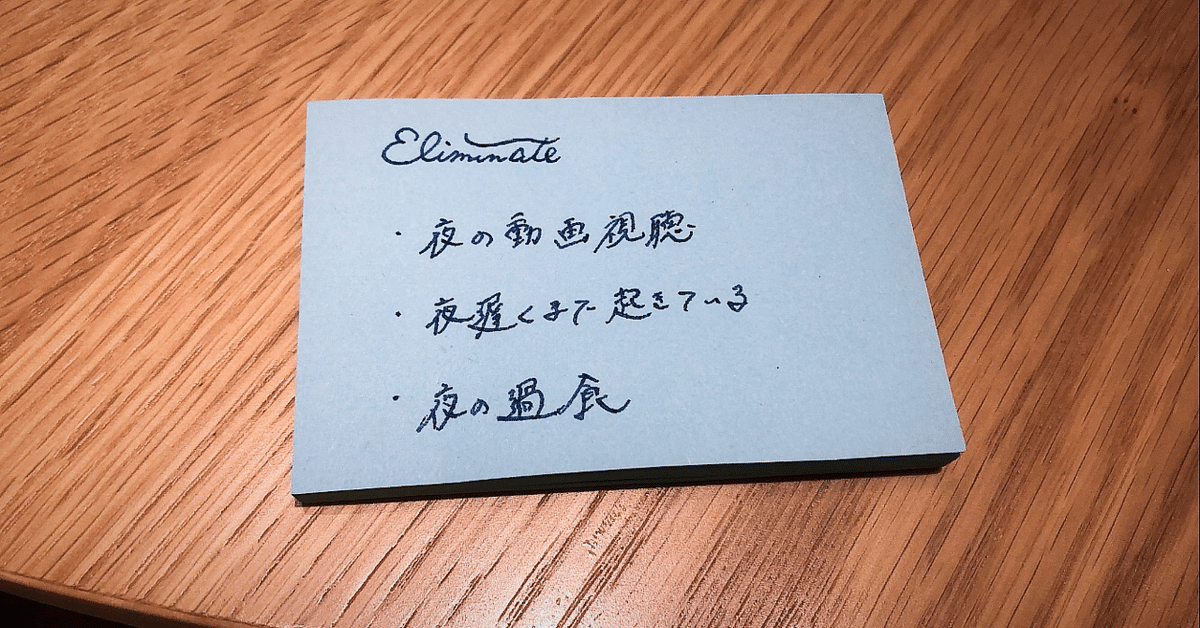 Eliminate
・夜の動画視聴
・夜遅くまで起きている
・夜の過食